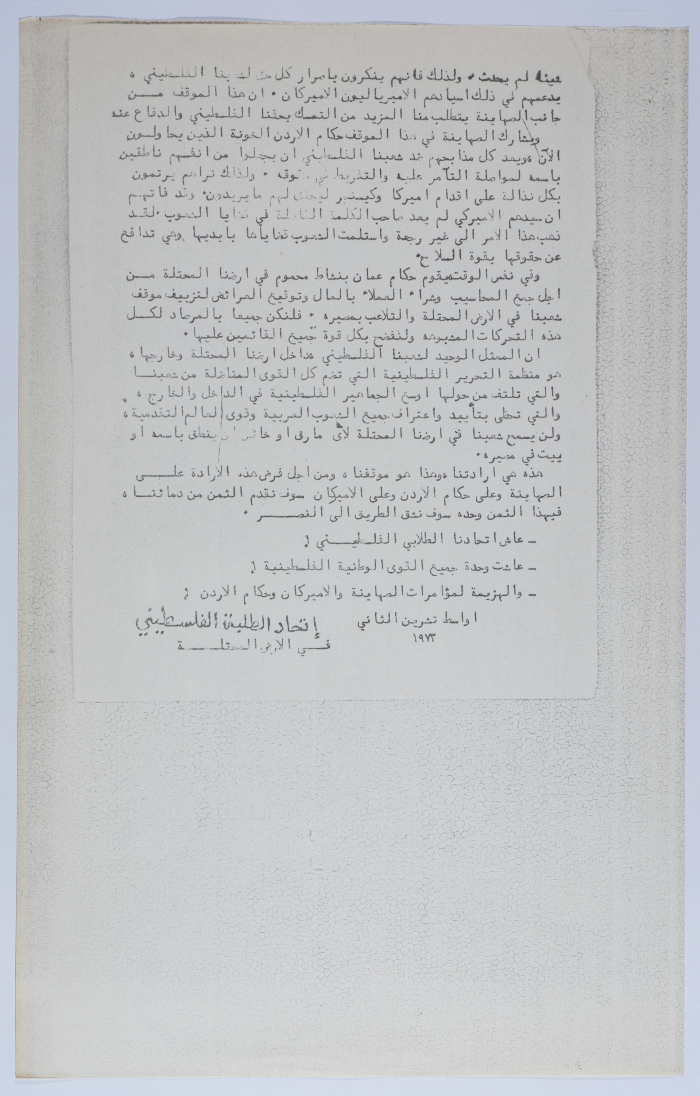 شيئا لم يحدث. ولذلك فانهم ينكرون باصرار كل حق لشعبنا الفلسطيني ،
يدعمهم في ذلك اسيادهم الامبرياليون الاميركان . ان هذا الموقف مــن
جانب الصهاينة يتطلب منا المزيد من التمسك بحقنا الفلسطيني والدفاع عنه
ويشارك الصهاينة في هذا الموقف حكام الاردن الخونة الذين يحاولــون
الآن وبعد كل مذابحهم ضد شعبنا الفلسطيني ان يجعلوا من انفسهم ناطقين
باسمه لمواصلة التآمر عليه والتفريط في حقوقه . ولذلك نراهم يرتمون
بكل نذالة على اقدام اميركا وكيسنجر ليحقق لهم ما يريدون. وقد فاتهــم
ان سيدهم الاميركي لم يعد صاحب الكلمة الفاصلة في قضايا الشعوب .لقــد
ذهب هذا الامر الى غير رجعة واستلمت الشعوب قضاياها بايديها وهي تدافع
عن حقوقها بقوة السلاح.
وفي نفس الوقت يقوم حكام عمان بنشاط محموم في ارضنا المحتلة مــن
اجل جمع المحاسيب وشراء العملاء بالمال وتوقيع العرائض لتزييف موقف
شعبنا في الارض المحتلة والتلاعب بمصيره . فلنكن جميعا بالمرصاد لكــل
هذه التحركات المشبوهه ولنفضح بكل قوة جميع القائمين عليها.
ان الممثل الوحيد لشعبنا الفلسطيني داخل ارضنا المحتلة وخارجها ،
هو منظمة التحرير الفلسطينية التي تضم كل القوى المناضلة من شعبنــا
والتي تلتف من حولها اوسع الجماهير الفلسطينية في الداخل والخارج ،
والتي تحظى بتأييد واعتراف جميع الشعوب العربية وقوى العالم التقدمية،
ولن يسمح شعبنا في ارضنا المحتلة لأى مارق او خائن ان ينطق باسمه او
يبت في مصيره.
هذه هي ارادتنا وهذا هو موقفنا، ومن اجل فرض هذه الارادة علــى
الصهاينة وعلى حكام الاردن وعلى الاميركان سوف نقدم الثمن من دمائنــا،
فبهذا الثمن وحده سوف نشق الطريق الى النصــر .
ـ عاش اتحادنا الطلابي الفلسطيــني !
ـ عاشت وحدة جميع القوى الوطنية الفلسطينية !
ـ والهزيمة لمؤامرات الصهاينة والاميركان وحكام الاردن !
اواسط تشرين الثاني
١٩٧٣
إتحاد الطلبة الفلسطيني
فــي الارض المحتلــة